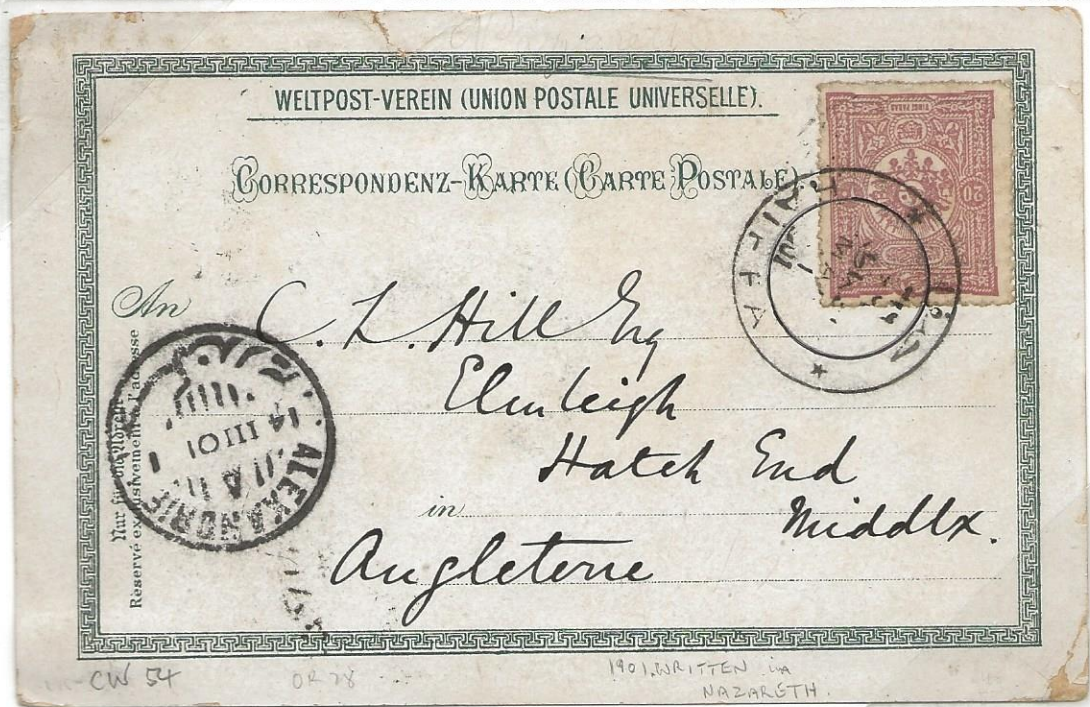 WELTPOST-VEREIN (UNION POSTALE UNIVERSELLE).
CORRESPONDENZ-KARTE (CARTE POSTALE)
20
HAIFFA
An
C. L. Hill Esq
Elmleigh
Hatch End
in
Middlx.
Angleterre
Nur für die Adresse
Réservé exclusivement à l'adresse
ALEXANDRIE
14 III 01
CW 54
OR 28
1901. WRITTEN in
NAZARETH.